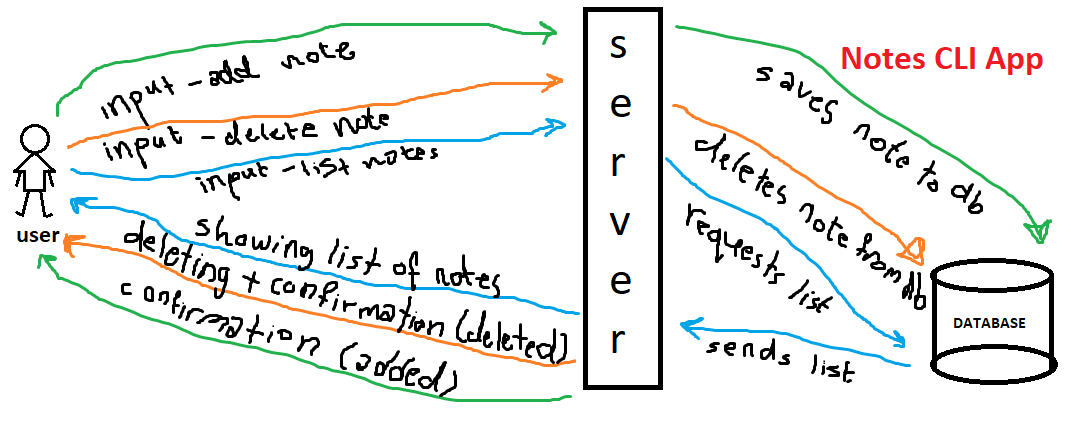 Notes CLI App
input - add note
input - delete note
input - list notes
user
showing list of notes
deleting + confirmation (deleted)
confirmation (added)
server
saves note to db
deletes note from db
requests list
sends list
DATABASE